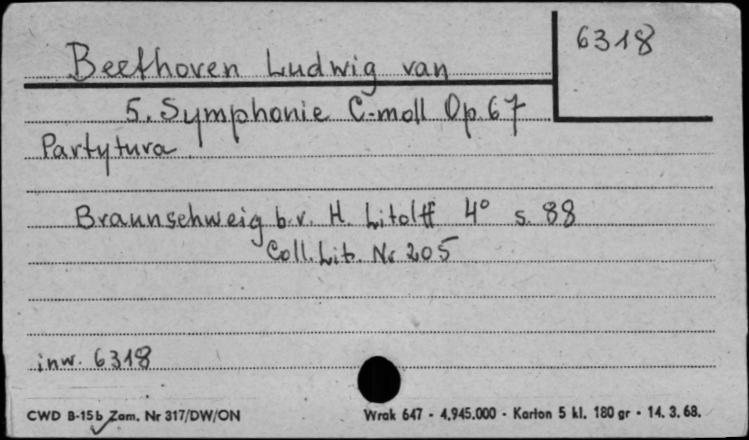 6318
Beethoven Ludwig van
5. Symphonie C-moll Op. 67
Partytura
Braunschweig b.r. H. Litolff 4° s. 88
Coll. Lit. Nr 205
inw. 6318
CWD B-15b Zam. Nr 317/DW/ON Wrak 647 - 4.945.000 - Karton 5 kl. 180 gr - 14. 3. 68.